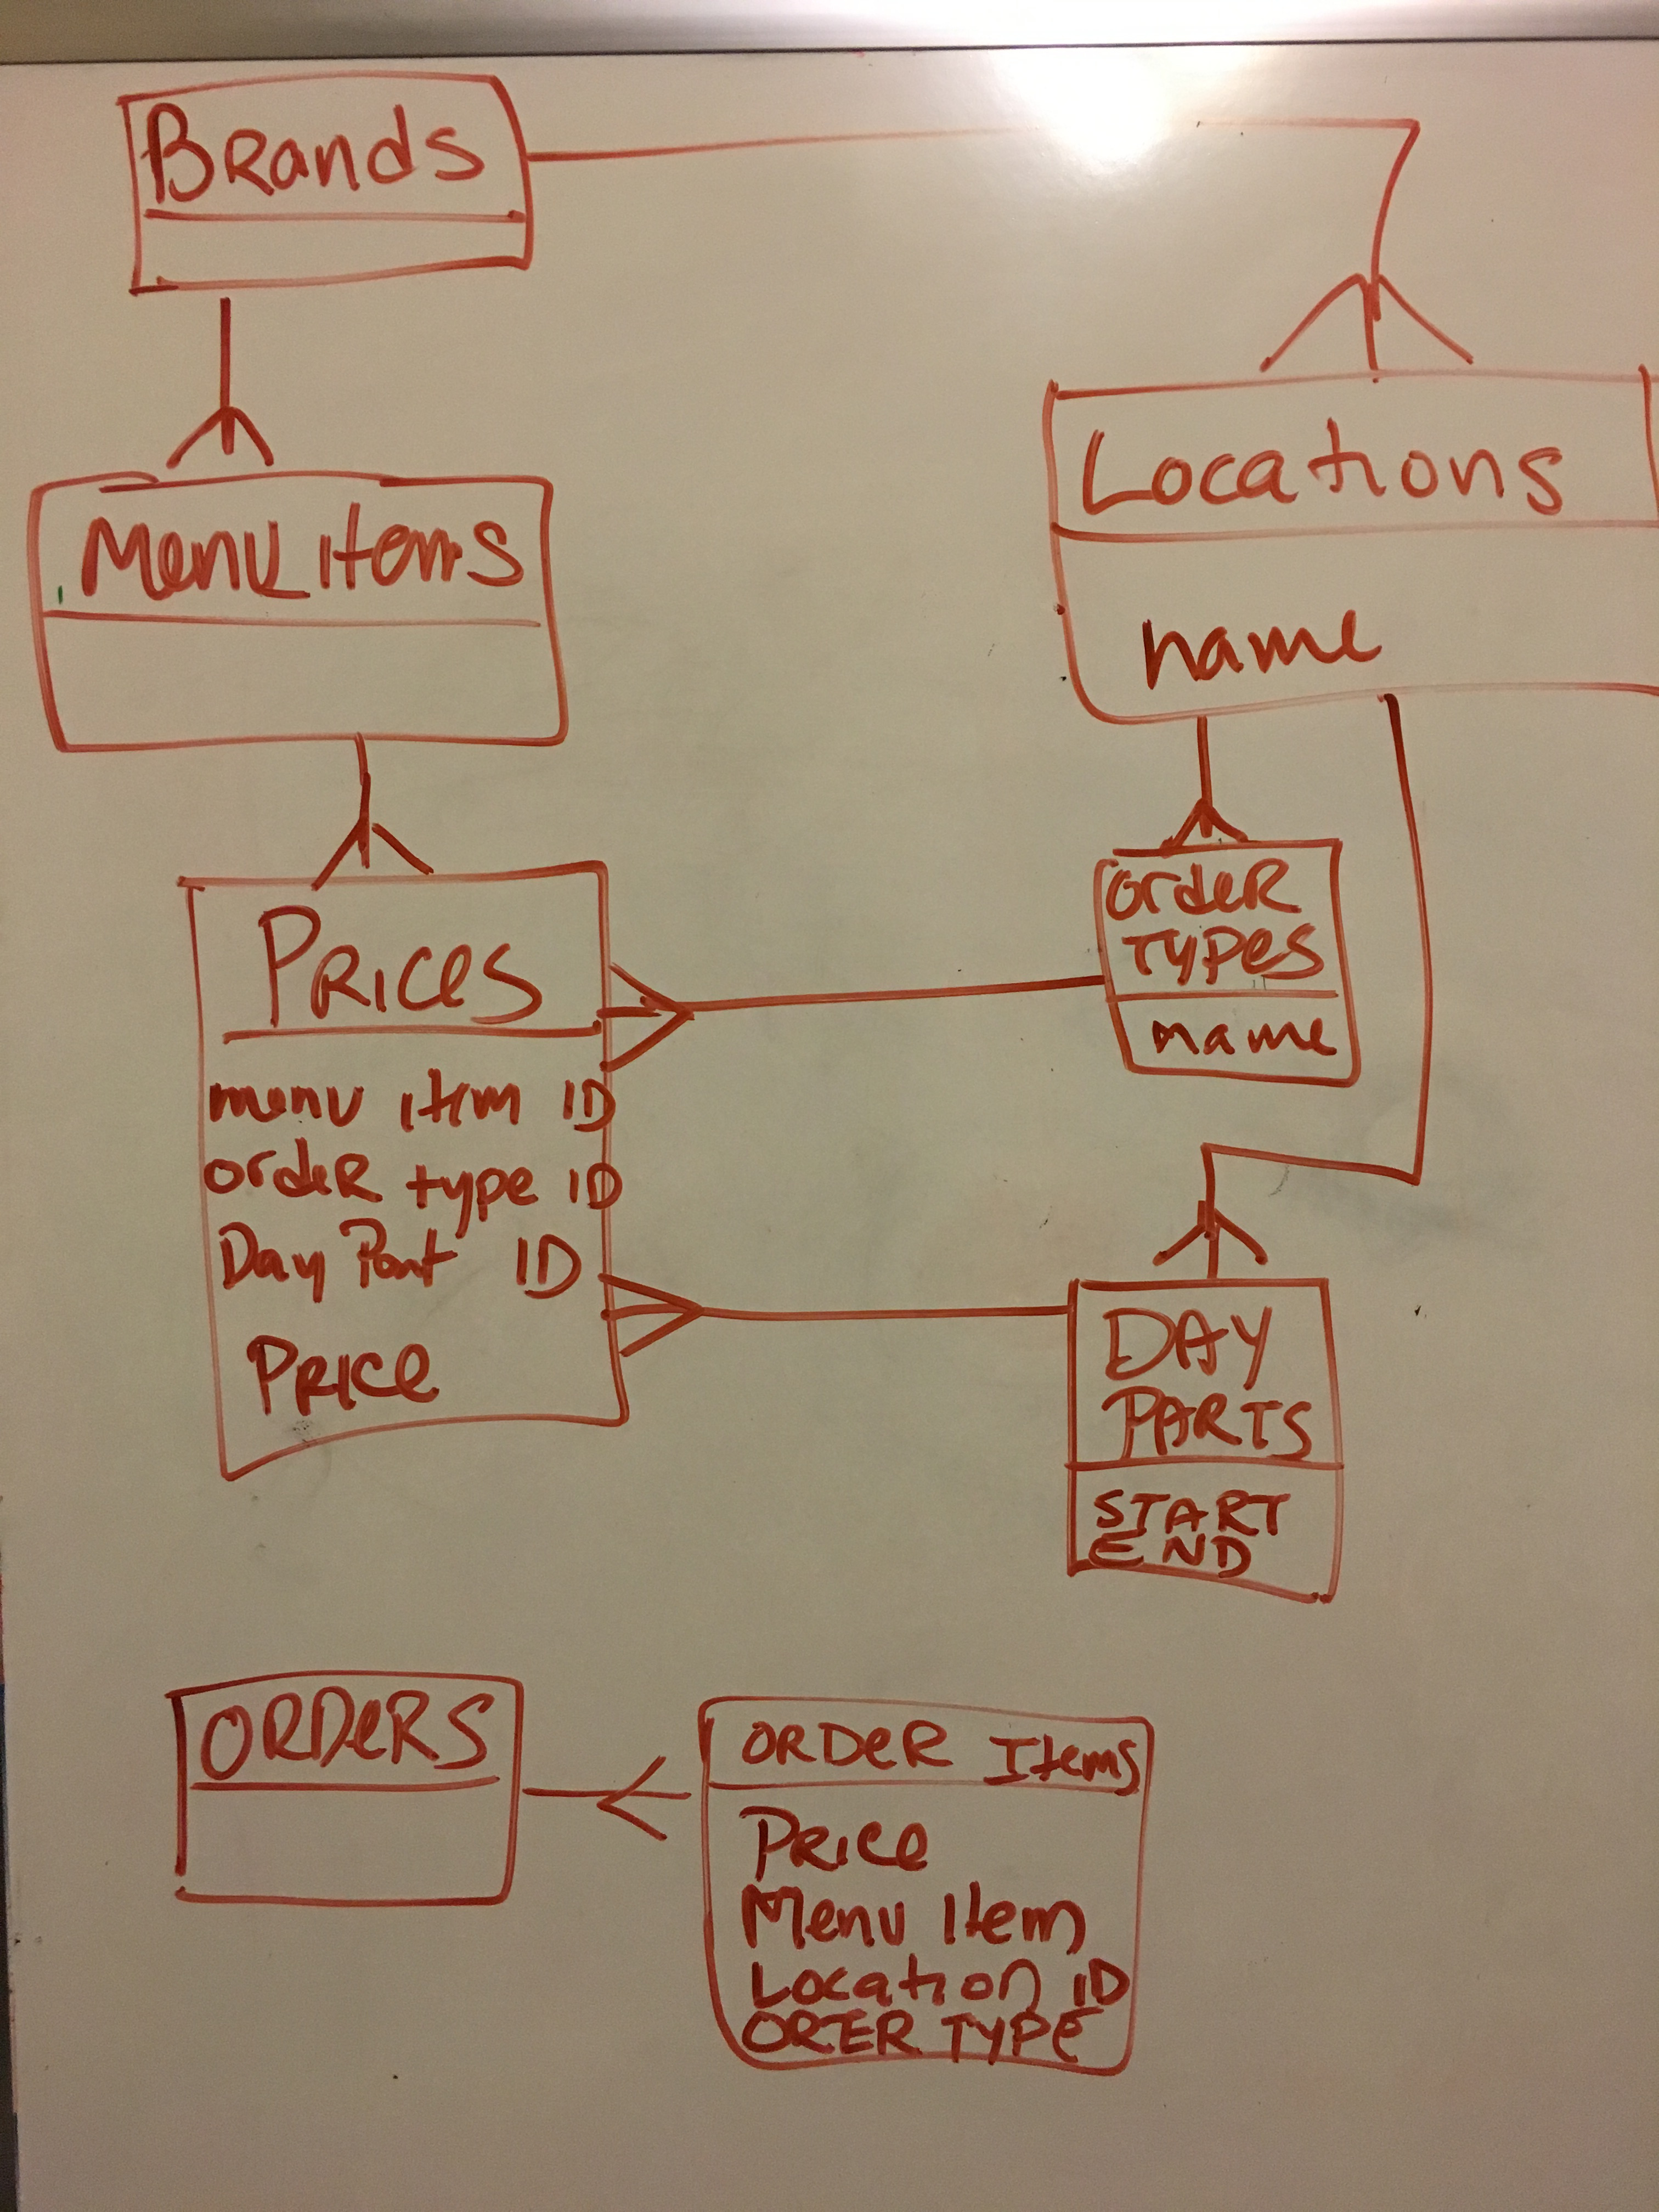 Brands
Locations
name
Menu items
Order
Types
name
Prices
menu item ID
order type ID
Day Part ID
Price
DAY
PARTS
START
END
ORDERS
ORDER Items
Price
Menu Item
Location ID
ORER TYPE